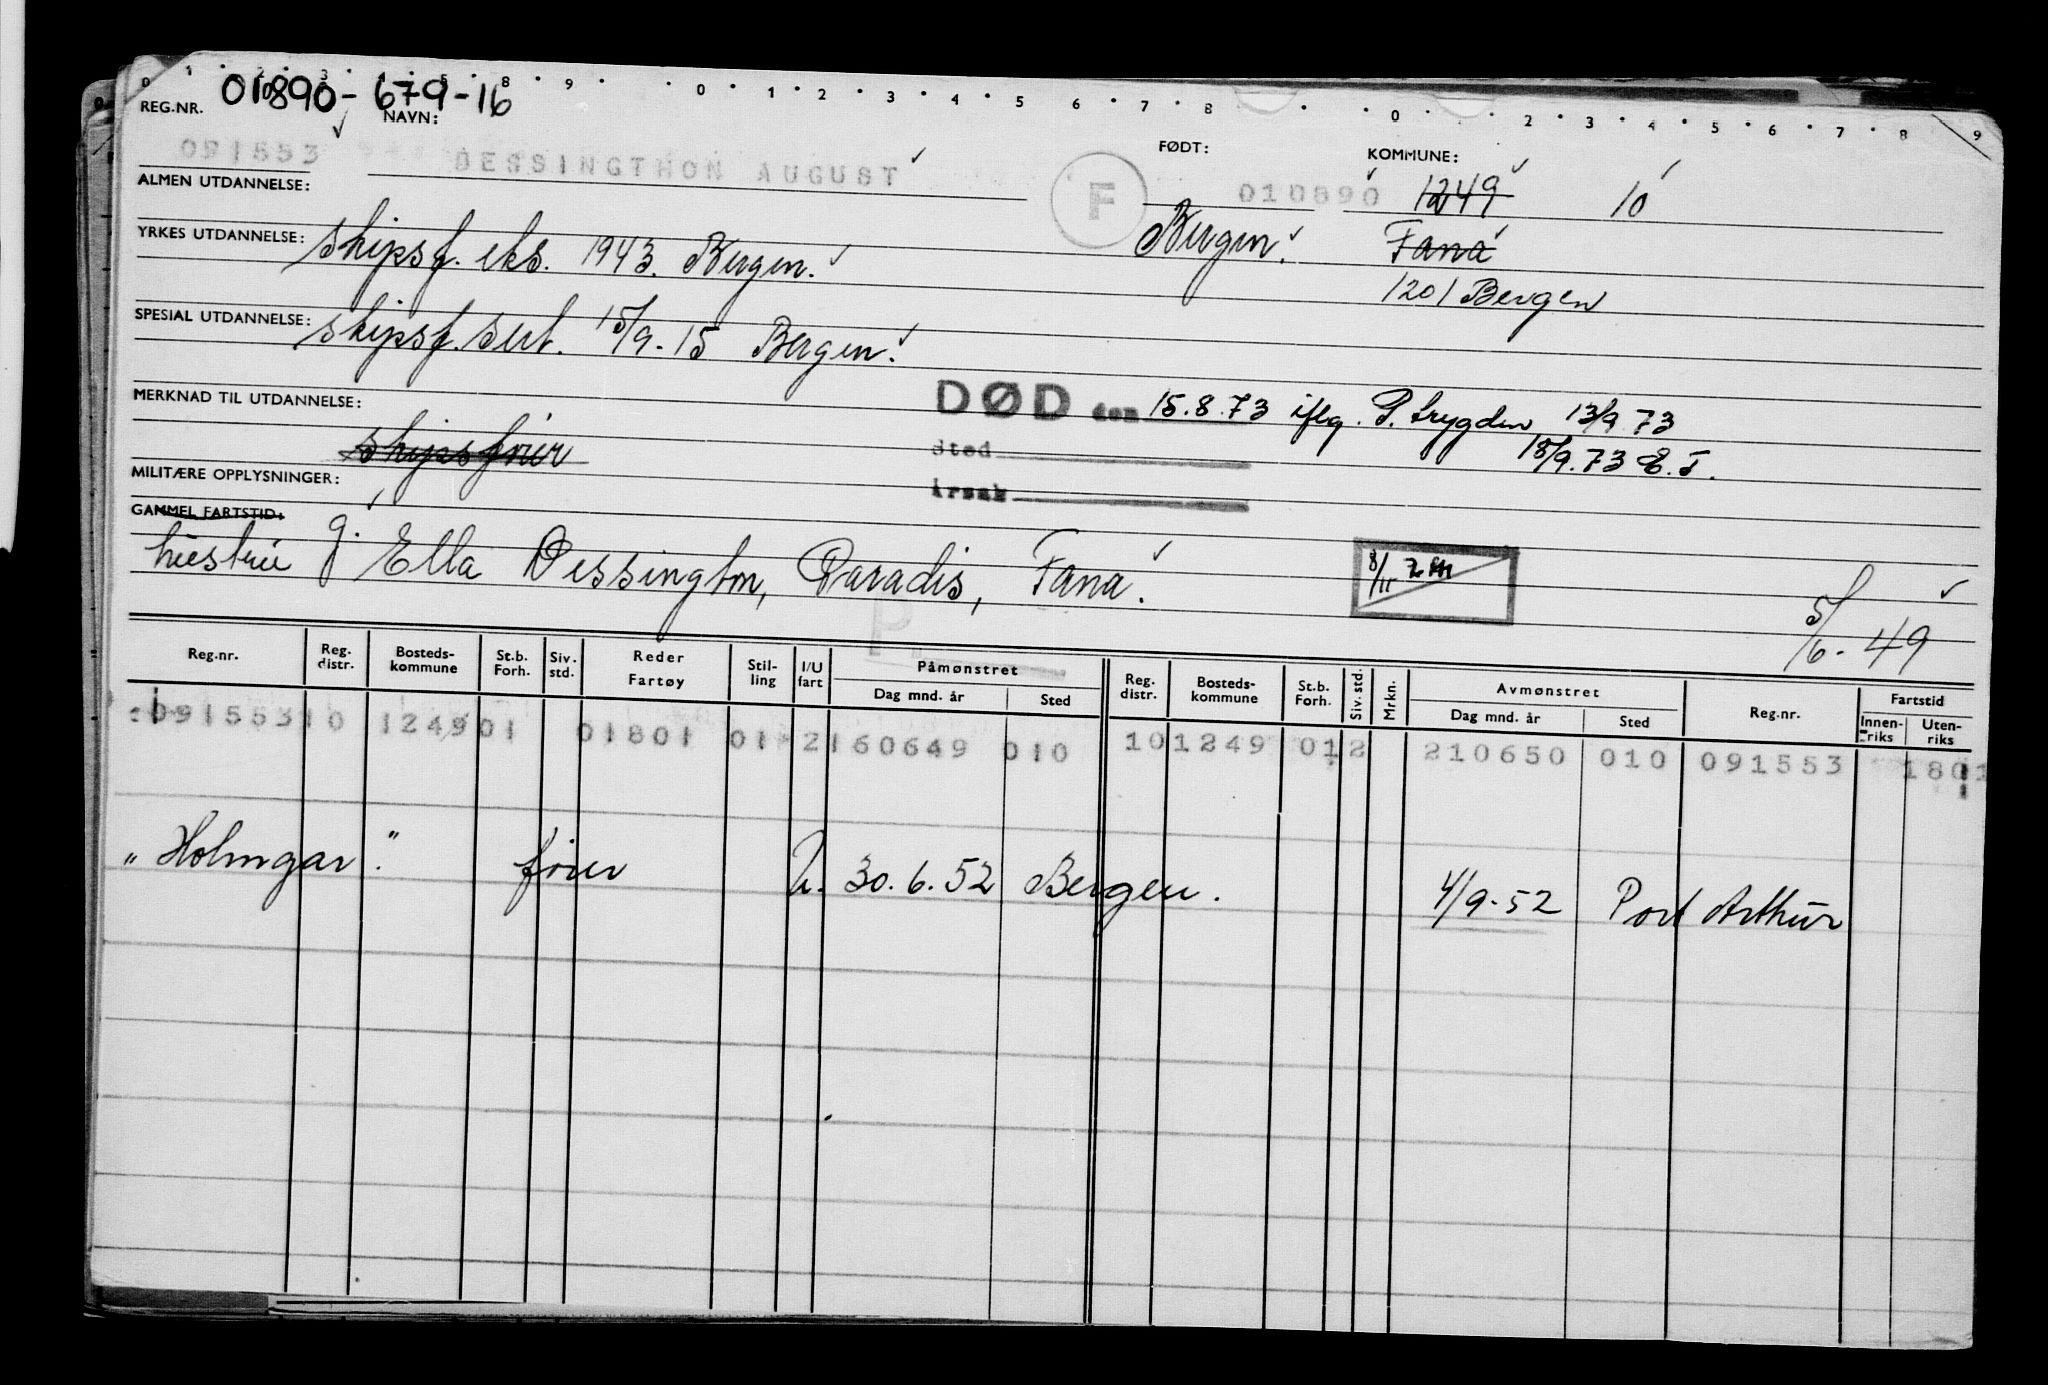 0 1 2 3 5 8 9 0 1 2 3 4 5 6 7 8 0 2 3 4 5 6 7 8 9
REG.NR. 010890-679-16
NAVN: FØDT: KOMMUNE:
091553 DESSINGTHON AUGUST F 010890 1249 10
ALMEN UTDANNELSE: Bergen. Fana
YRKES UTDANNELSE: skipsf. eks. 1943. Bergen. 1201 Bergen
SPESIAL UTDANNELSE: skipsf. sert. 15/9-15 Bergen.
MERKNAD TIL UTDANNELSE: DØD den 15.8.73 iflg. P. trygden 13/9 73
skipsfører Sted 18/9.73 E.T.
MILITÆRE OPPLYSNINGER: Årsak
GAMMEL FARTSTID:
hustru g. Ella Dessington, Paradis, Fana. 8/11
P. 5/6-49
Reg.nr. Reg. distr. Bosteds-kommune St.b. Forh. Siv. std. Reder Fartøy Stil-ling I/U fart Påmønstret Dag mnd. år Sted Reg. distr. Bosteds-kommune St.b. Forh. Siv. std. Mrkn. Avmønstret Dag mnd. år Sted Reg.nr. Fartstid Innen-riks Uten-riks
091553 10 1249 01 01801 01 2 160649 010 10 1249 01 2 210650 010 091553 1801
"Holmgar." fører U. 30.6.52 Bergen. 4/9-52 Port Arthur